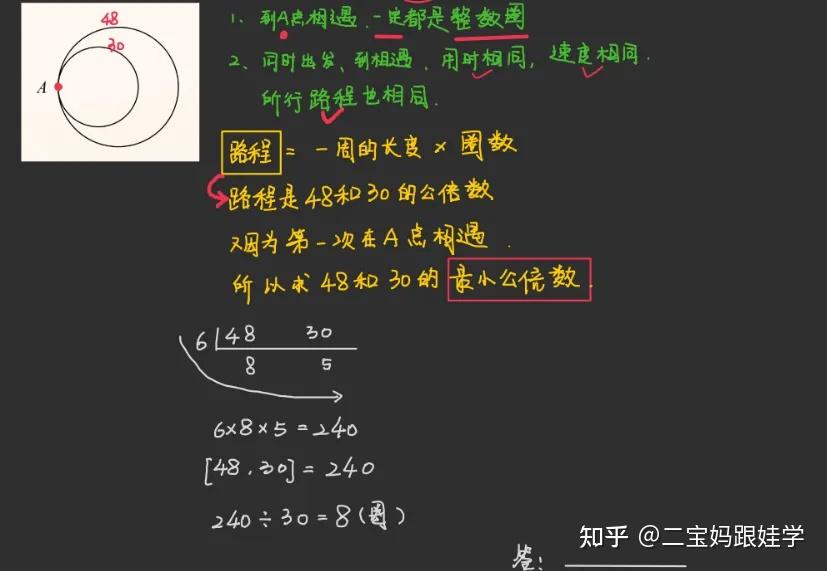 48
30
A
1、到A点相遇.一定都是整数圈
2、同时出发、到相遇.用时相同,速度相同.
所行路程也相同.
路程=一周的长度×圈数
路程是48和30的公倍数
又因为第一次在A点相遇.
所以求48和30的最小公倍数.
6 48 30
8 5
6×8×5=240
[48.30]=240
240÷30=8(圈)
答:
知乎 @二宝妈跟娃学